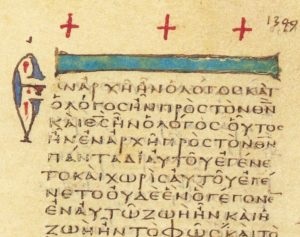 1399
ΕΝΑΡΧΗΗΝΟΛΟΓΟϹΚΑΙ
ΟΛΟΓΟϹΗΝΠΡΟϹΤΟΝΘΝ
ΚΑΙΘϹΗΝΟΛΟΓΟϹ·ΟΥΤΟϹ
ΗΝΕΝΑΡΧΗΠΡΟϹΤΟΝΘΝ
ΠΑΝΤΑΔΙΑΥΤΟΥΕΓΕΝΕ
ΤΟΚΑΙΧΩΡΙϹΑΥΤΟΥΕΓΕ
ΝΕΤΟΟΥΔΕΕΝΟΓΕΓΟΝΕ
ΕΝΑΥΤΩΖΩΗΗΝΚΑΙΗ
ΖΩΗΗΝΤΟΦΩϹ